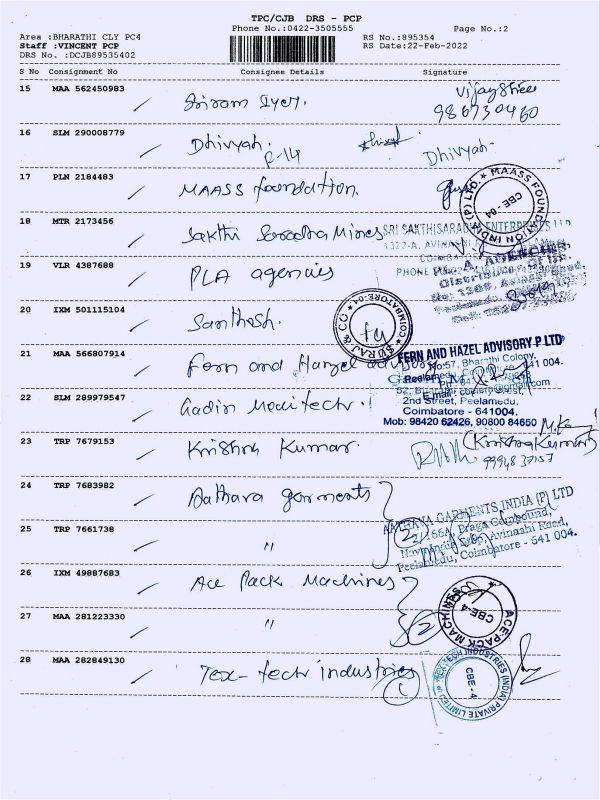 TPC/CJB DRS - PCP
Phone No.:0422-3505555
Page No.:2
Area :BHARATHI CLY PC4
Staff :VINCENT PCP
DRS No. :DCJB89535402
RS No.:895354
RS Date:22-Feb-2022
S No Consignment No Consignee Details Signature
15 MAA 562450983 Sriram Iyer. Vijayshree
986730460
16 SLM 290008779 Dhivyah. Dhivyah
R-14
17 PLN 2184483 MAASS foundation.
MAASS FOUNDATION INDIA (P) LTD. CBE-04
18 MTR 2173456 Sakthi Saradha Mines SRI SAKTHISARADHA ENTERPRISES
1322-A, AVINASHI
PHONE
19 VLR 4387688 PLA agencies
AGENCIES
20 IXM 501115104 Santhosh.
SURAJ & CO COIMBATORE-04
21 MAA 566807914 Fern and Hazel advisory
FERN AND HAZEL ADVISORY P LTD
No:57, Bharathi Colony,
Peelamedu, Coimbatore 641 004.
22 SLM 289979547 Gadin Monitech
2nd Street, Peelamedu,
Coimbatore - 641004.
Mob: 98420 62426, 90800 84650
23 TRP 7679153 Krishna Kumar. (Krishnakumar)
99948 37157
24 TRP 7683982 Aathava garments
AATHAVA GARMENTS INDIA (P) LTD
25 TRP 7661738 "
2
Avinashi Road,
Peelamedu, Coimbatore - 641 004.
26 IXM 49887683 Ace Pack Machines
27 MAA 281223330 "
2
ACE PACK MACHINES CBE-4
28 MAA 282849130 Tex-tech industries
1
TEX-TECH INDUSTRIES (INDIA) PRIVATE LIMITED CBE-4